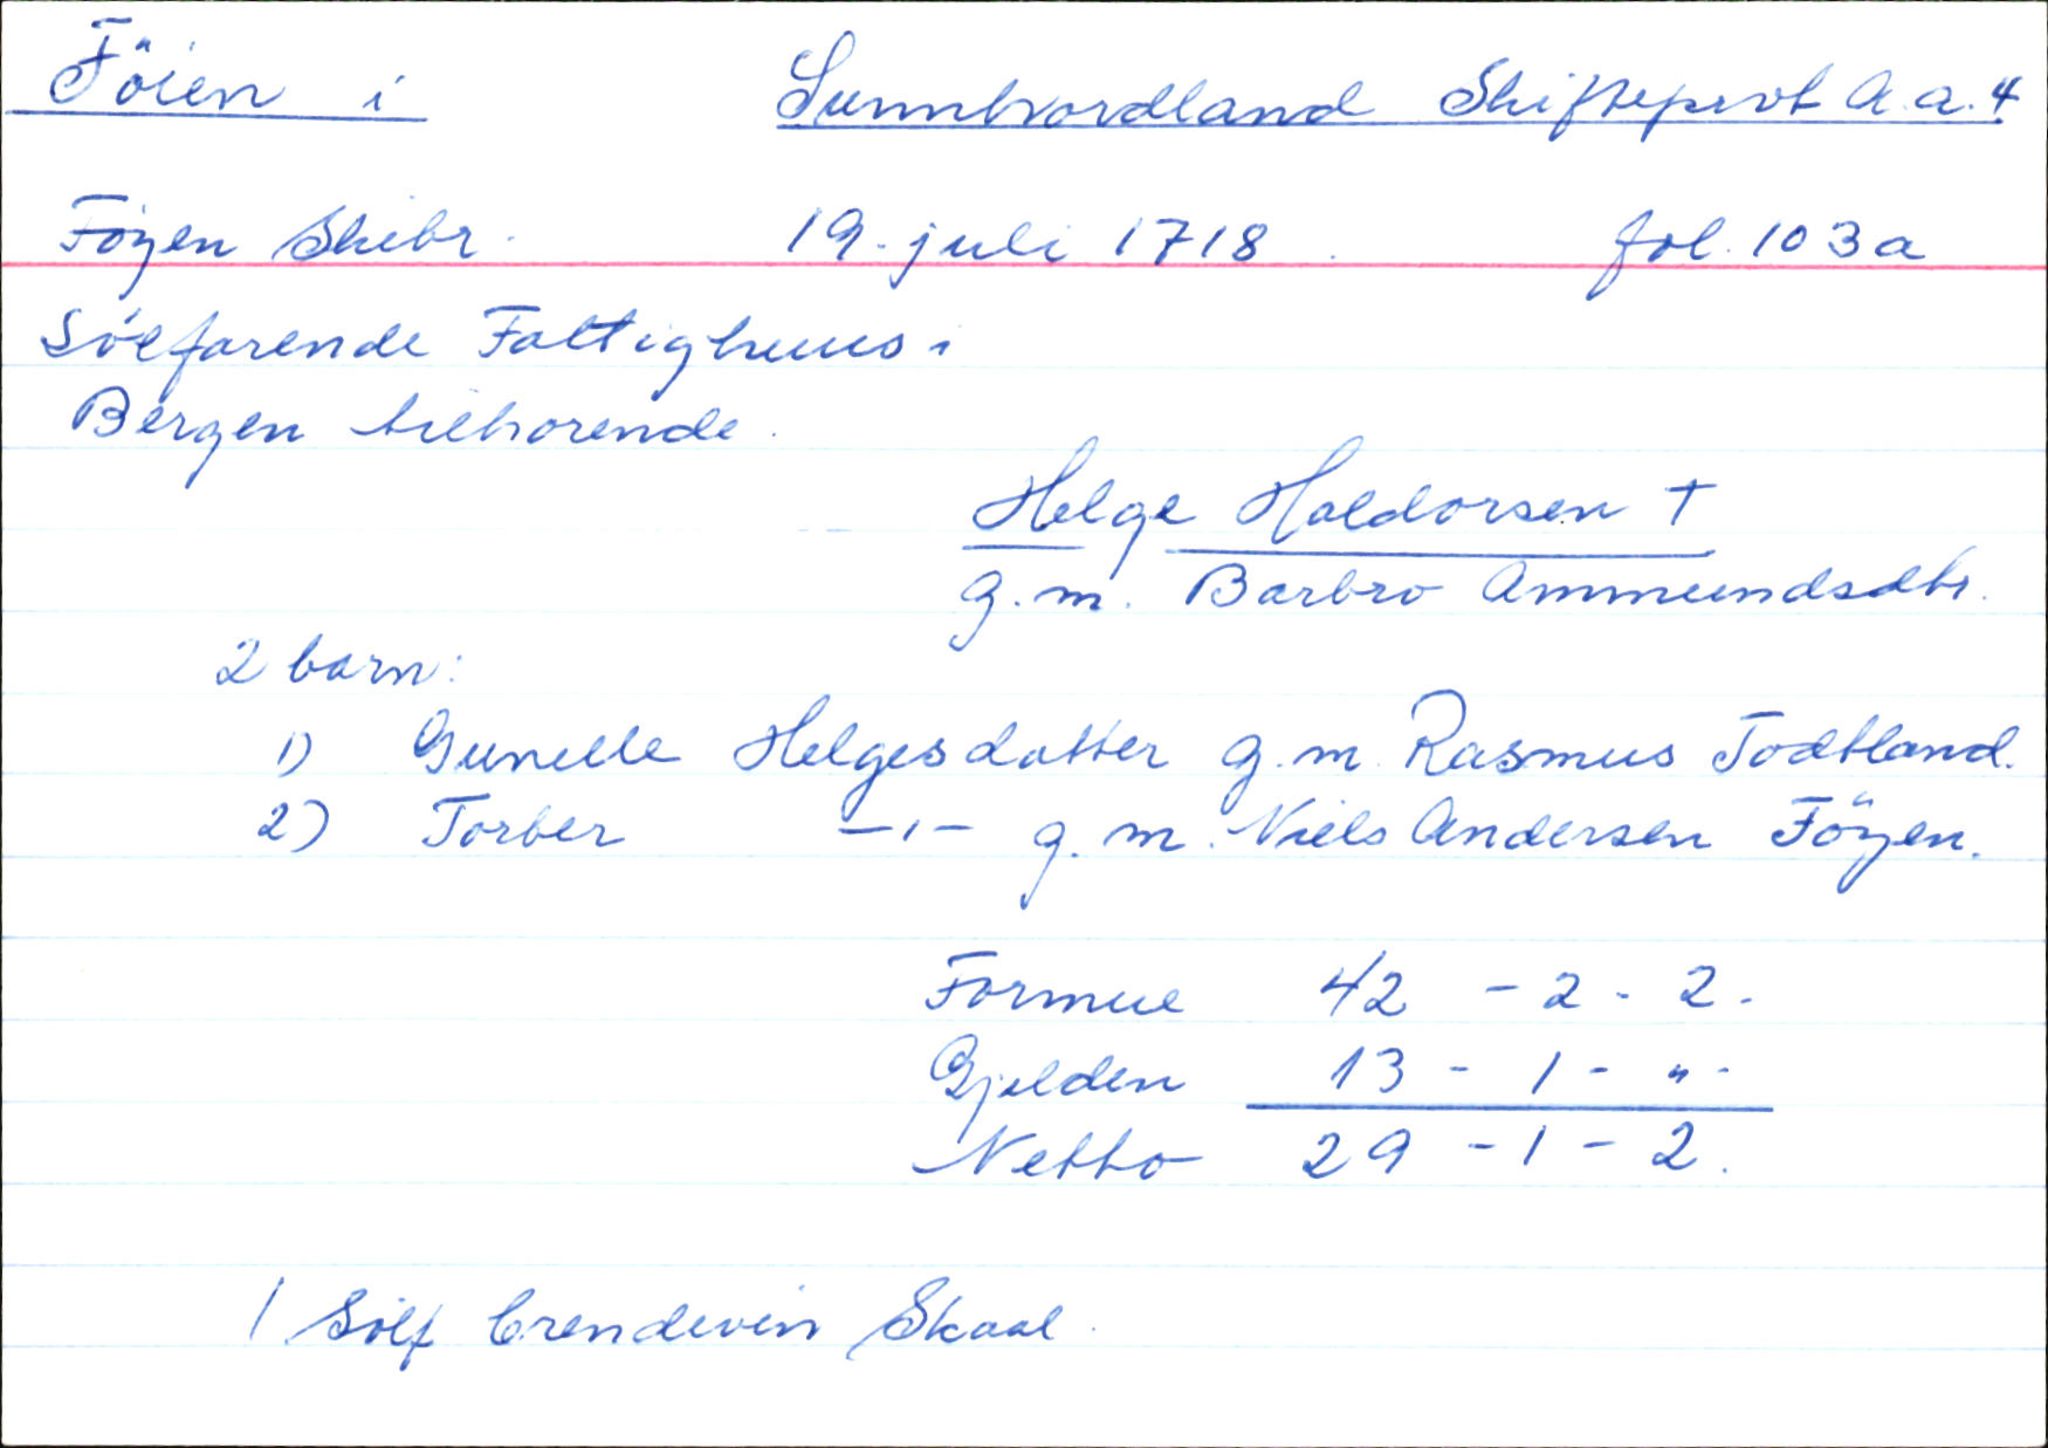 Föien i Sunnhordland Skifteprot A.a.4
Föyen Skibr. 19. juli 1718. fol. 103a
Söefarende Fattighuus i
Bergen tilhorende.
Helge Haldorsen †
g.m. Barbro Ammundsdtr.
2 barn:
1) Gunelle Helgesdatter g.m. Rasmus Todtland.
2) Torber —"— g.m. Niels Andersen Föyen.
Formue 42 - 2 - 2.
Gjelden 13 - 1 - " -
Netto 29 - 1 - 2.
1 Sölf brendevin Skaal.